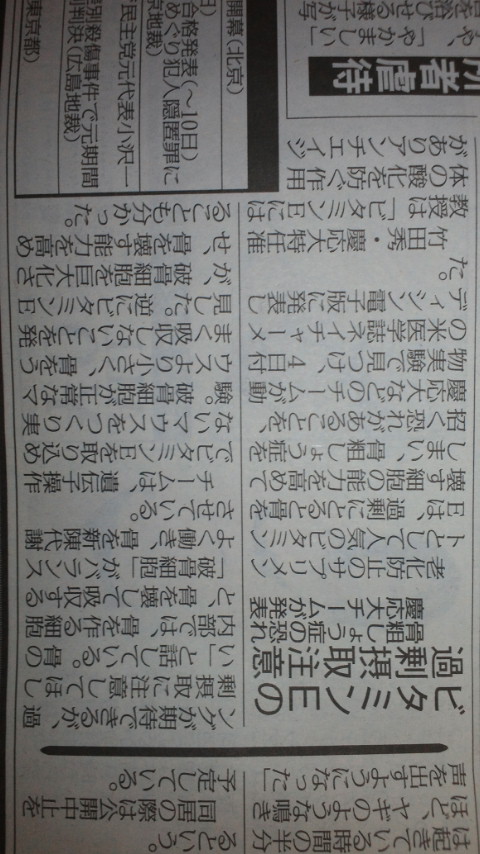 は起きている時間の半分
ほど、ヤギのような鳴き
声を出すようになった」
るという。
同居の際は公開中止を
予定している。
ビタミンEの
過剰摂取注意
骨粗しょう症の恐れ
慶応大チームが発表
老化防止のサプリメン
トとして人気のビタミン
Eは、過剰にとると骨を
壊す細胞の能力を高めて
しまい、骨粗しょう症を
招く恐れがあることを、
慶応大などのチームが動
物実験で見つけ、4日付
の米医学誌ネイチャーメ
ディシン電子版に発表し
た。
竹田秀・慶応大特任准
教授は「ビタミンEには
体の酸化を防ぐ作用
がありアンチエイジ
ングが期待できるが、過
剰摂取に注意してほし
い」と話している。骨の
内部では、骨を作る細胞
と、骨を壊して吸収する
「破骨細胞」がバランス
よく働き、骨を新陳代謝
させている。
チームは、遺伝子操作
でビタミンEを取り込め
ないマウスをつくり実
験。破骨細胞が正常なマ
ウスより小さく、骨をう
まく吸収しないことを発
見した。逆にビタミンE
が、破骨細胞を巨大化さ
せ、骨を壊す能力を高め
ることも分かった。
所者虐待
や、「やかましい」
を浴びせる様子が写
開幕(北京)
合格発表(~10日)
めぐり犯人隠匿罪に
地裁)
民主党元代表小沢一
別殺傷事件で元期間
判決(広島地裁)
東京都)